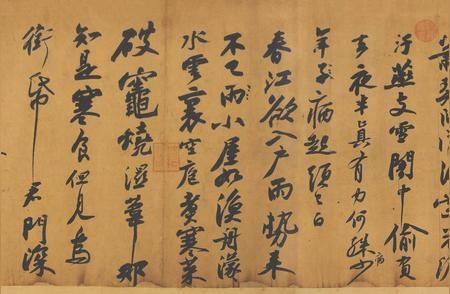 汙燕支雪闇中偷負
去夜半真有力何殊少病
年子病起頭已白
春江欲入戶雨勢來
不已雨小屋如漁舟濛
水雲裏空庖煮寒菜
破竈燒濕葦那
知是寒食但見烏
銜帋君門深